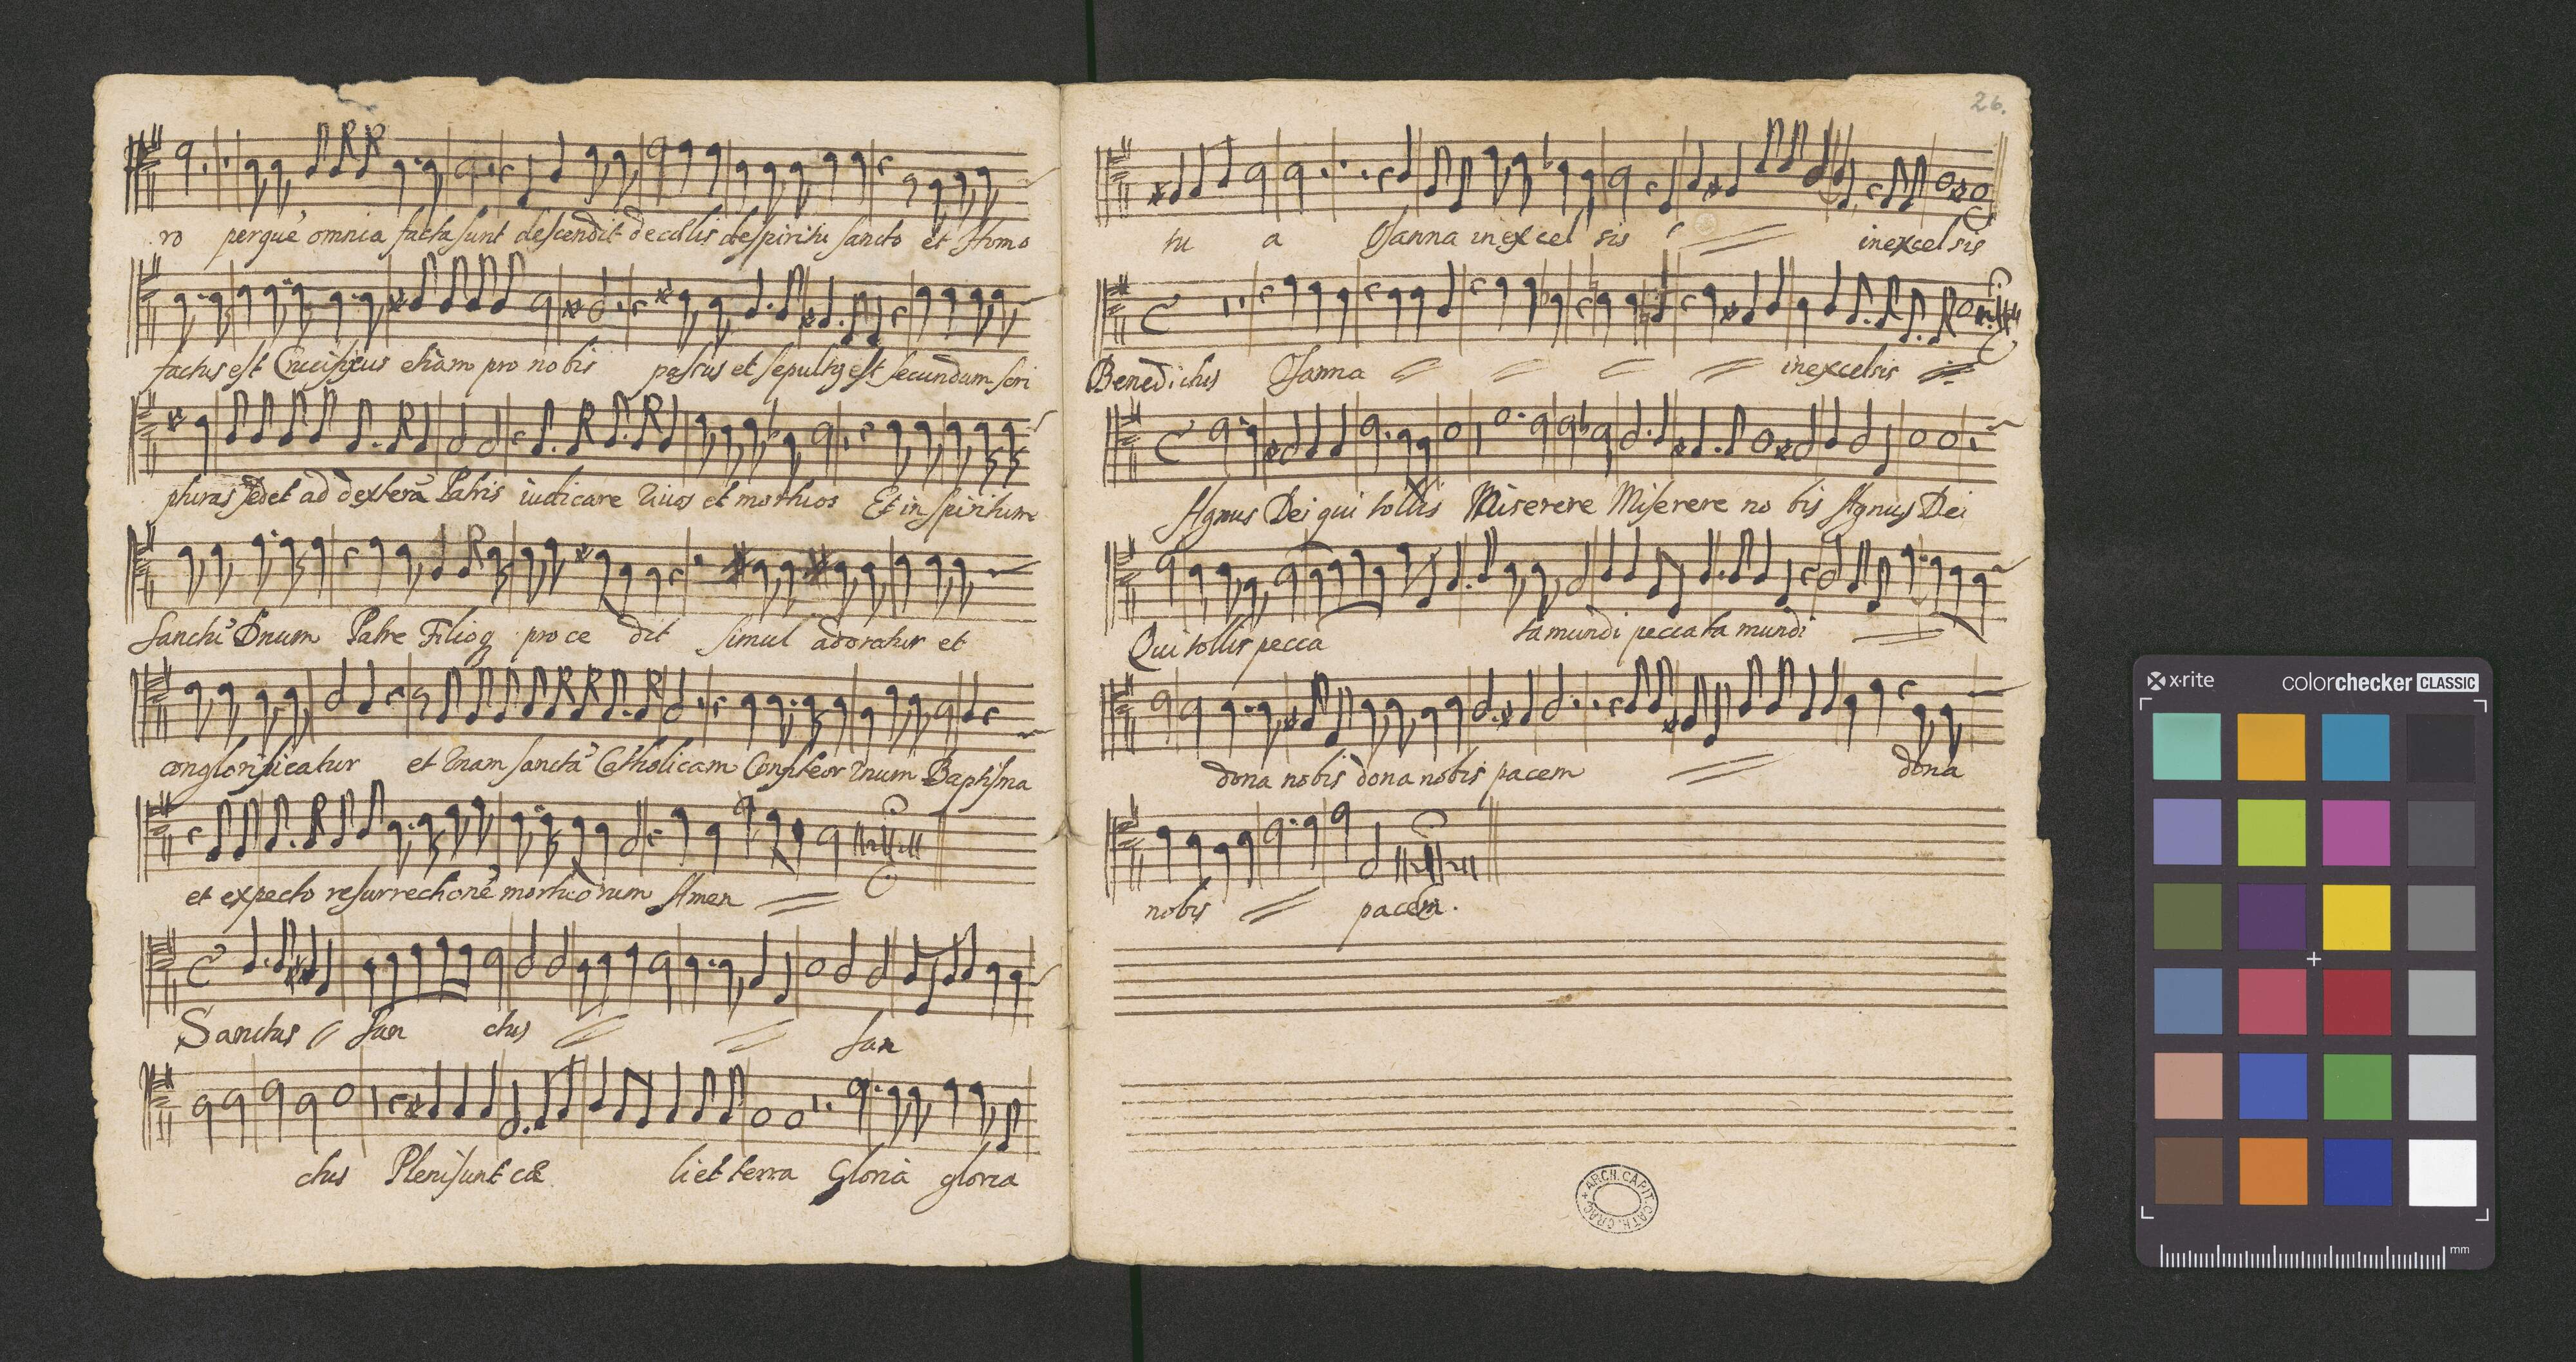 ro perquē omnia facta sunt descendit de cælis de spiritu sancto et Homo
factus est Crucifixus etiam pro nobis passus et sepultq est secundum scri
pturas sedet ad dexterā Patris iudicare Vivos et mortuos Et in spiritum
Sanctū Dnum Patre Filioq procedit simul adoratur et
conglorificatur et Unam sanctā Catholicam Confiteor Unum Baptisma
et expecto resurrectionē mortuorum Amen
Sanctus San ctus San
ctus Pleni sunt cæ li et terra Gloria gloria
26.
tu a Osanna in excel sis in excelsis
Benedictus Osanna in excelsis
Agnus Dei qui tollis Miserere Miserere no bis Agnus Dei
Qui tollis pecca ta mundi peccata mundi
dona nobis dona nobis pacem dona
nobis pacem.
ARCH. CAPIT. CATH. CRAC.
x-rite colorchecker CLASSIC
mm